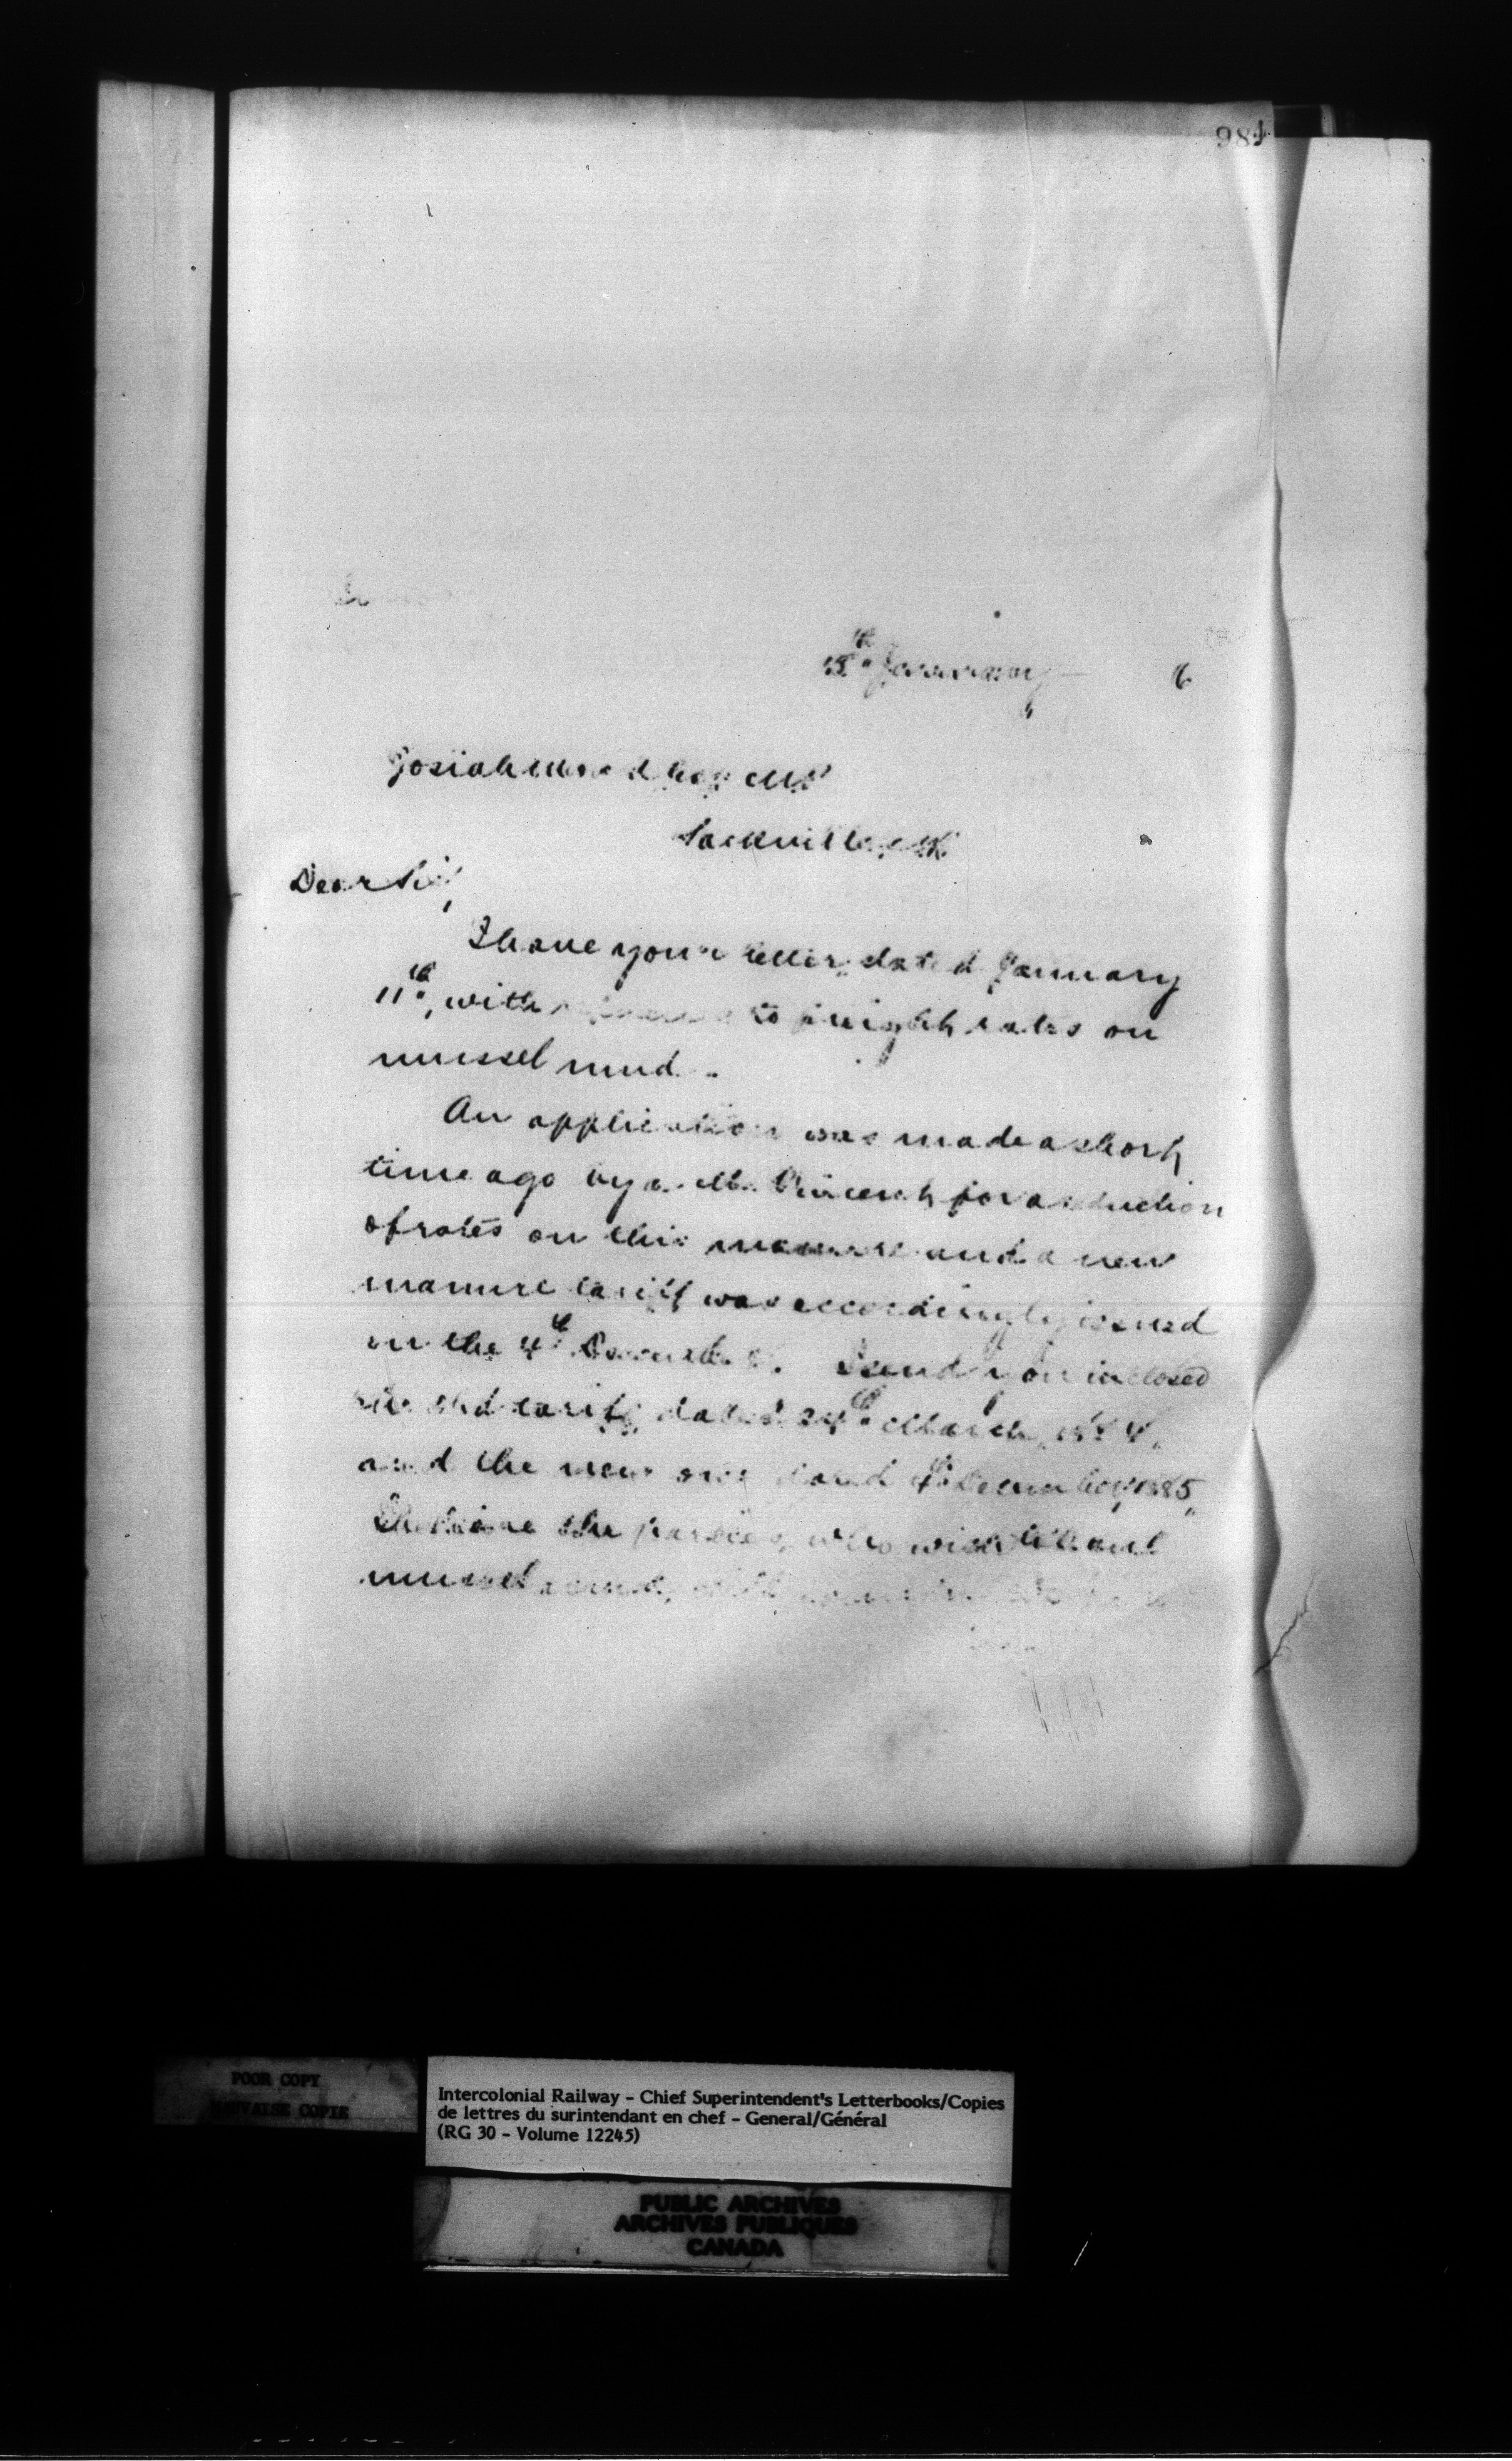 984
15th January 6
Josiah Wood Esq MP
Sackville, NB
Dear Sir,
I have your letter dated January
11th, with reference to freight rates on
mussel mud.
An application was made a short
time ago by a Mr. Vincent for a reduction
of rates on this manure and a new
manure tariff was accordingly issued
on the 4th December. I send you inclosed
the old tariff dated 24th March, 1884,
and the new one dated 4th December, 1885,
the parties, who wish to haul
mussel mud,
POOR COPY
MAUVAISE COPIE
Intercolonial Railway - Chief Superintendent's Letterbooks/Copies
de lettres du surintendant en chef - General/Général
(RG 30 - Volume 12245)
PUBLIC ARCHIVES
ARCHIVES PUBLIQUES
CANADA